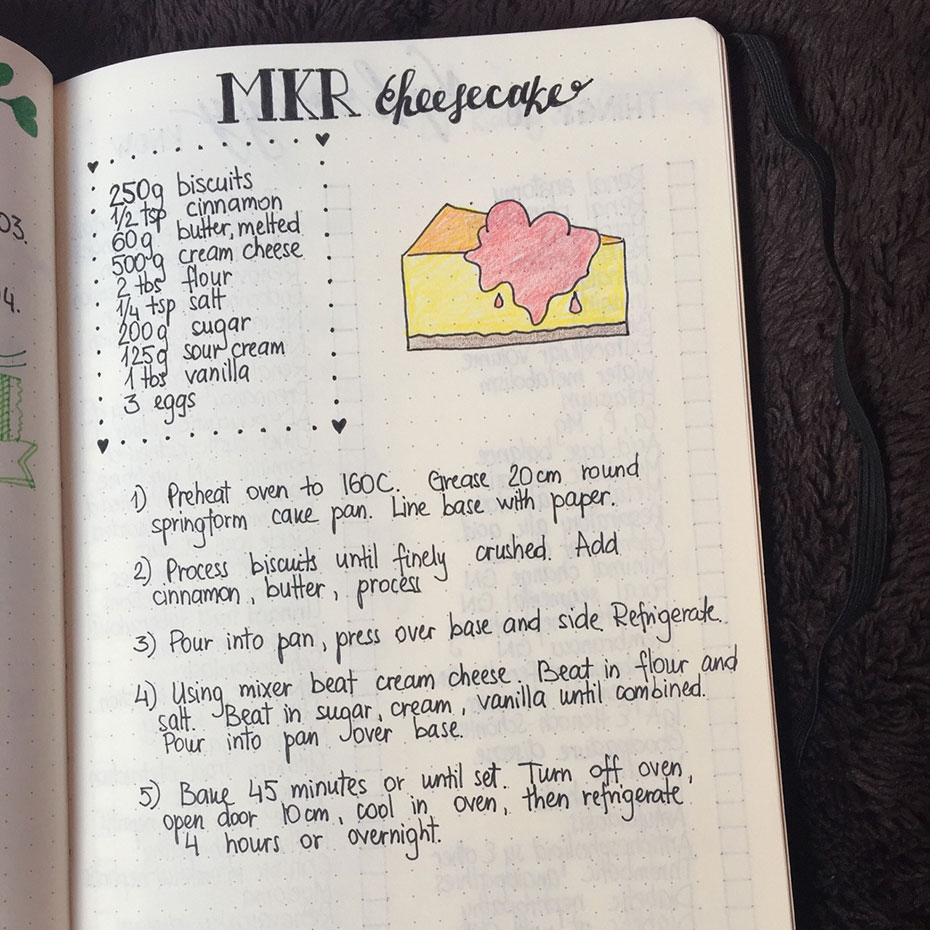 MKR cheesecake
250g biscuits
1/2 tsp cinnamon
60g butter, melted
500g cream cheese
2 tbs flour
1/4 tsp salt
200g sugar
125g sour cream
1 tbs vanilla
3 eggs
1) Preheat oven to 160C. Grease 20cm round
springform cake pan. Line base with paper.
2) Process biscuits until finely crushed. Add
cinnamon, butter, process
3) Pour into pan, press over base and side Refrigerate.
4) Using mixer beat cream cheese Beat in flour and
salt. Beat in sugar, cream, vanilla until combined.
Pour into pan over base.
5) Bake 45 minutes or until set. Turn off oven,
open door 10cm, cool in oven, then refrigerate
4 hours or overnight.
03.
4.